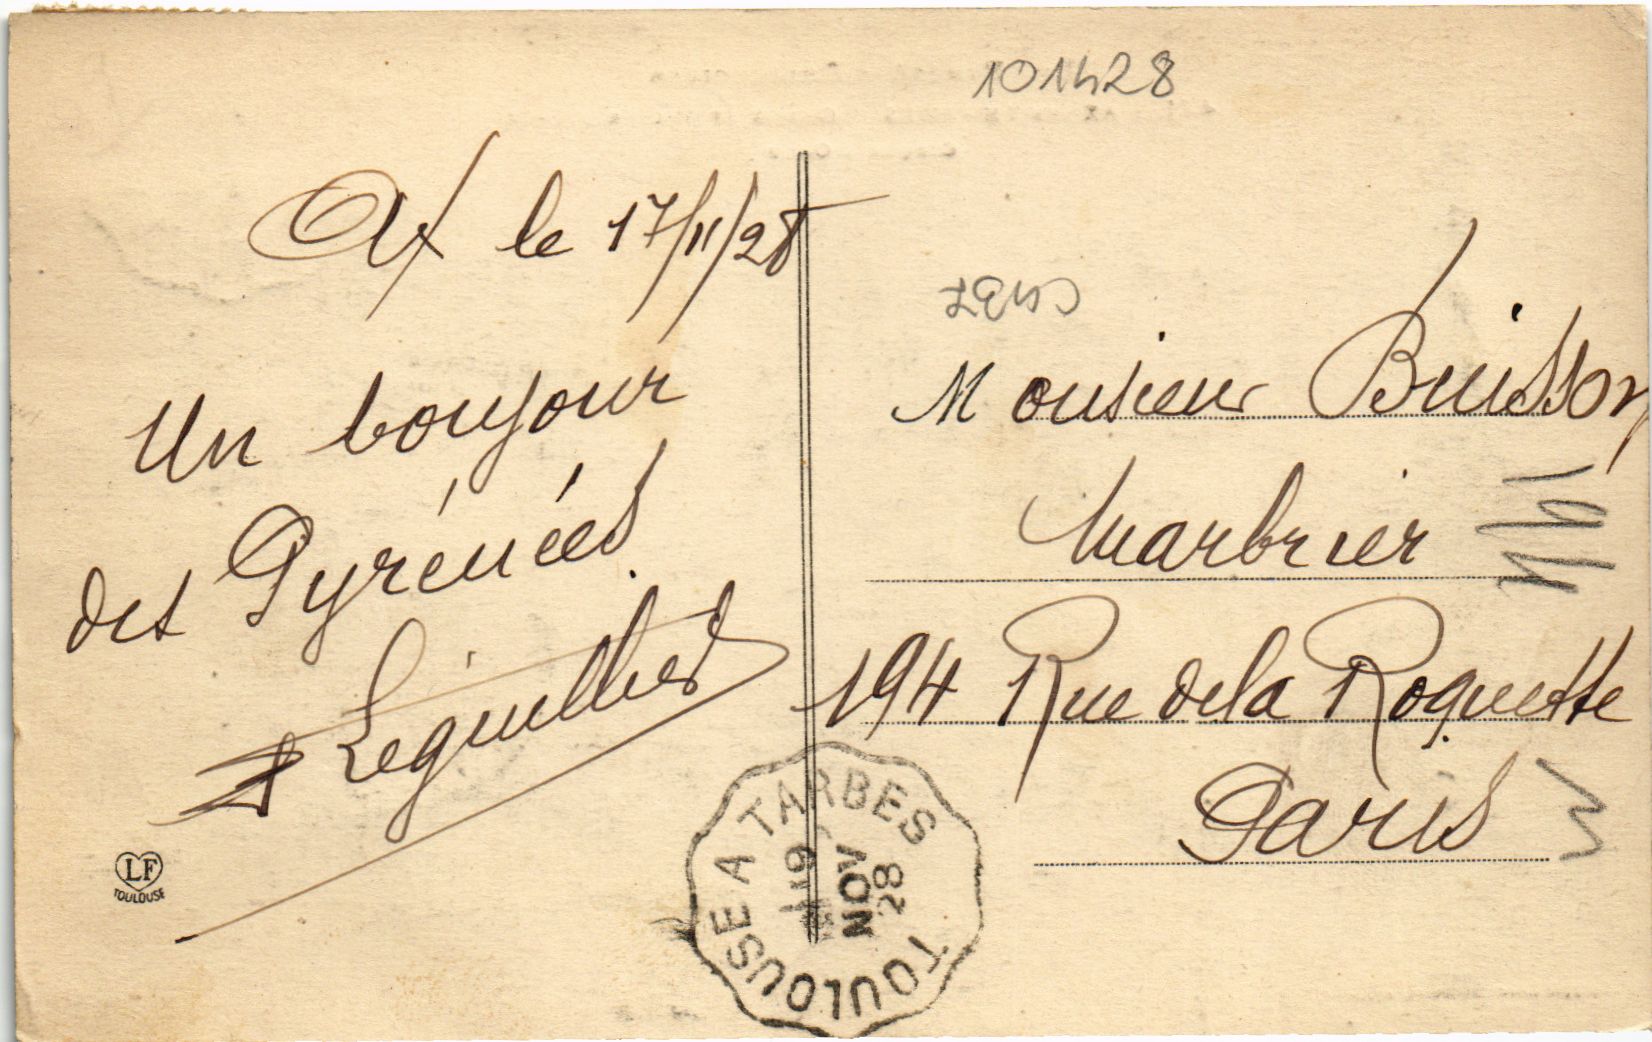 101428
Ax le 17/11/28
Un bonjour
des Pyrénées
Monsieur Buisson
Marbrier
194 Rue de la Roquette
Paris
LF
TOULOUSE
TOULOUSE A TARBES
19
NOV
28